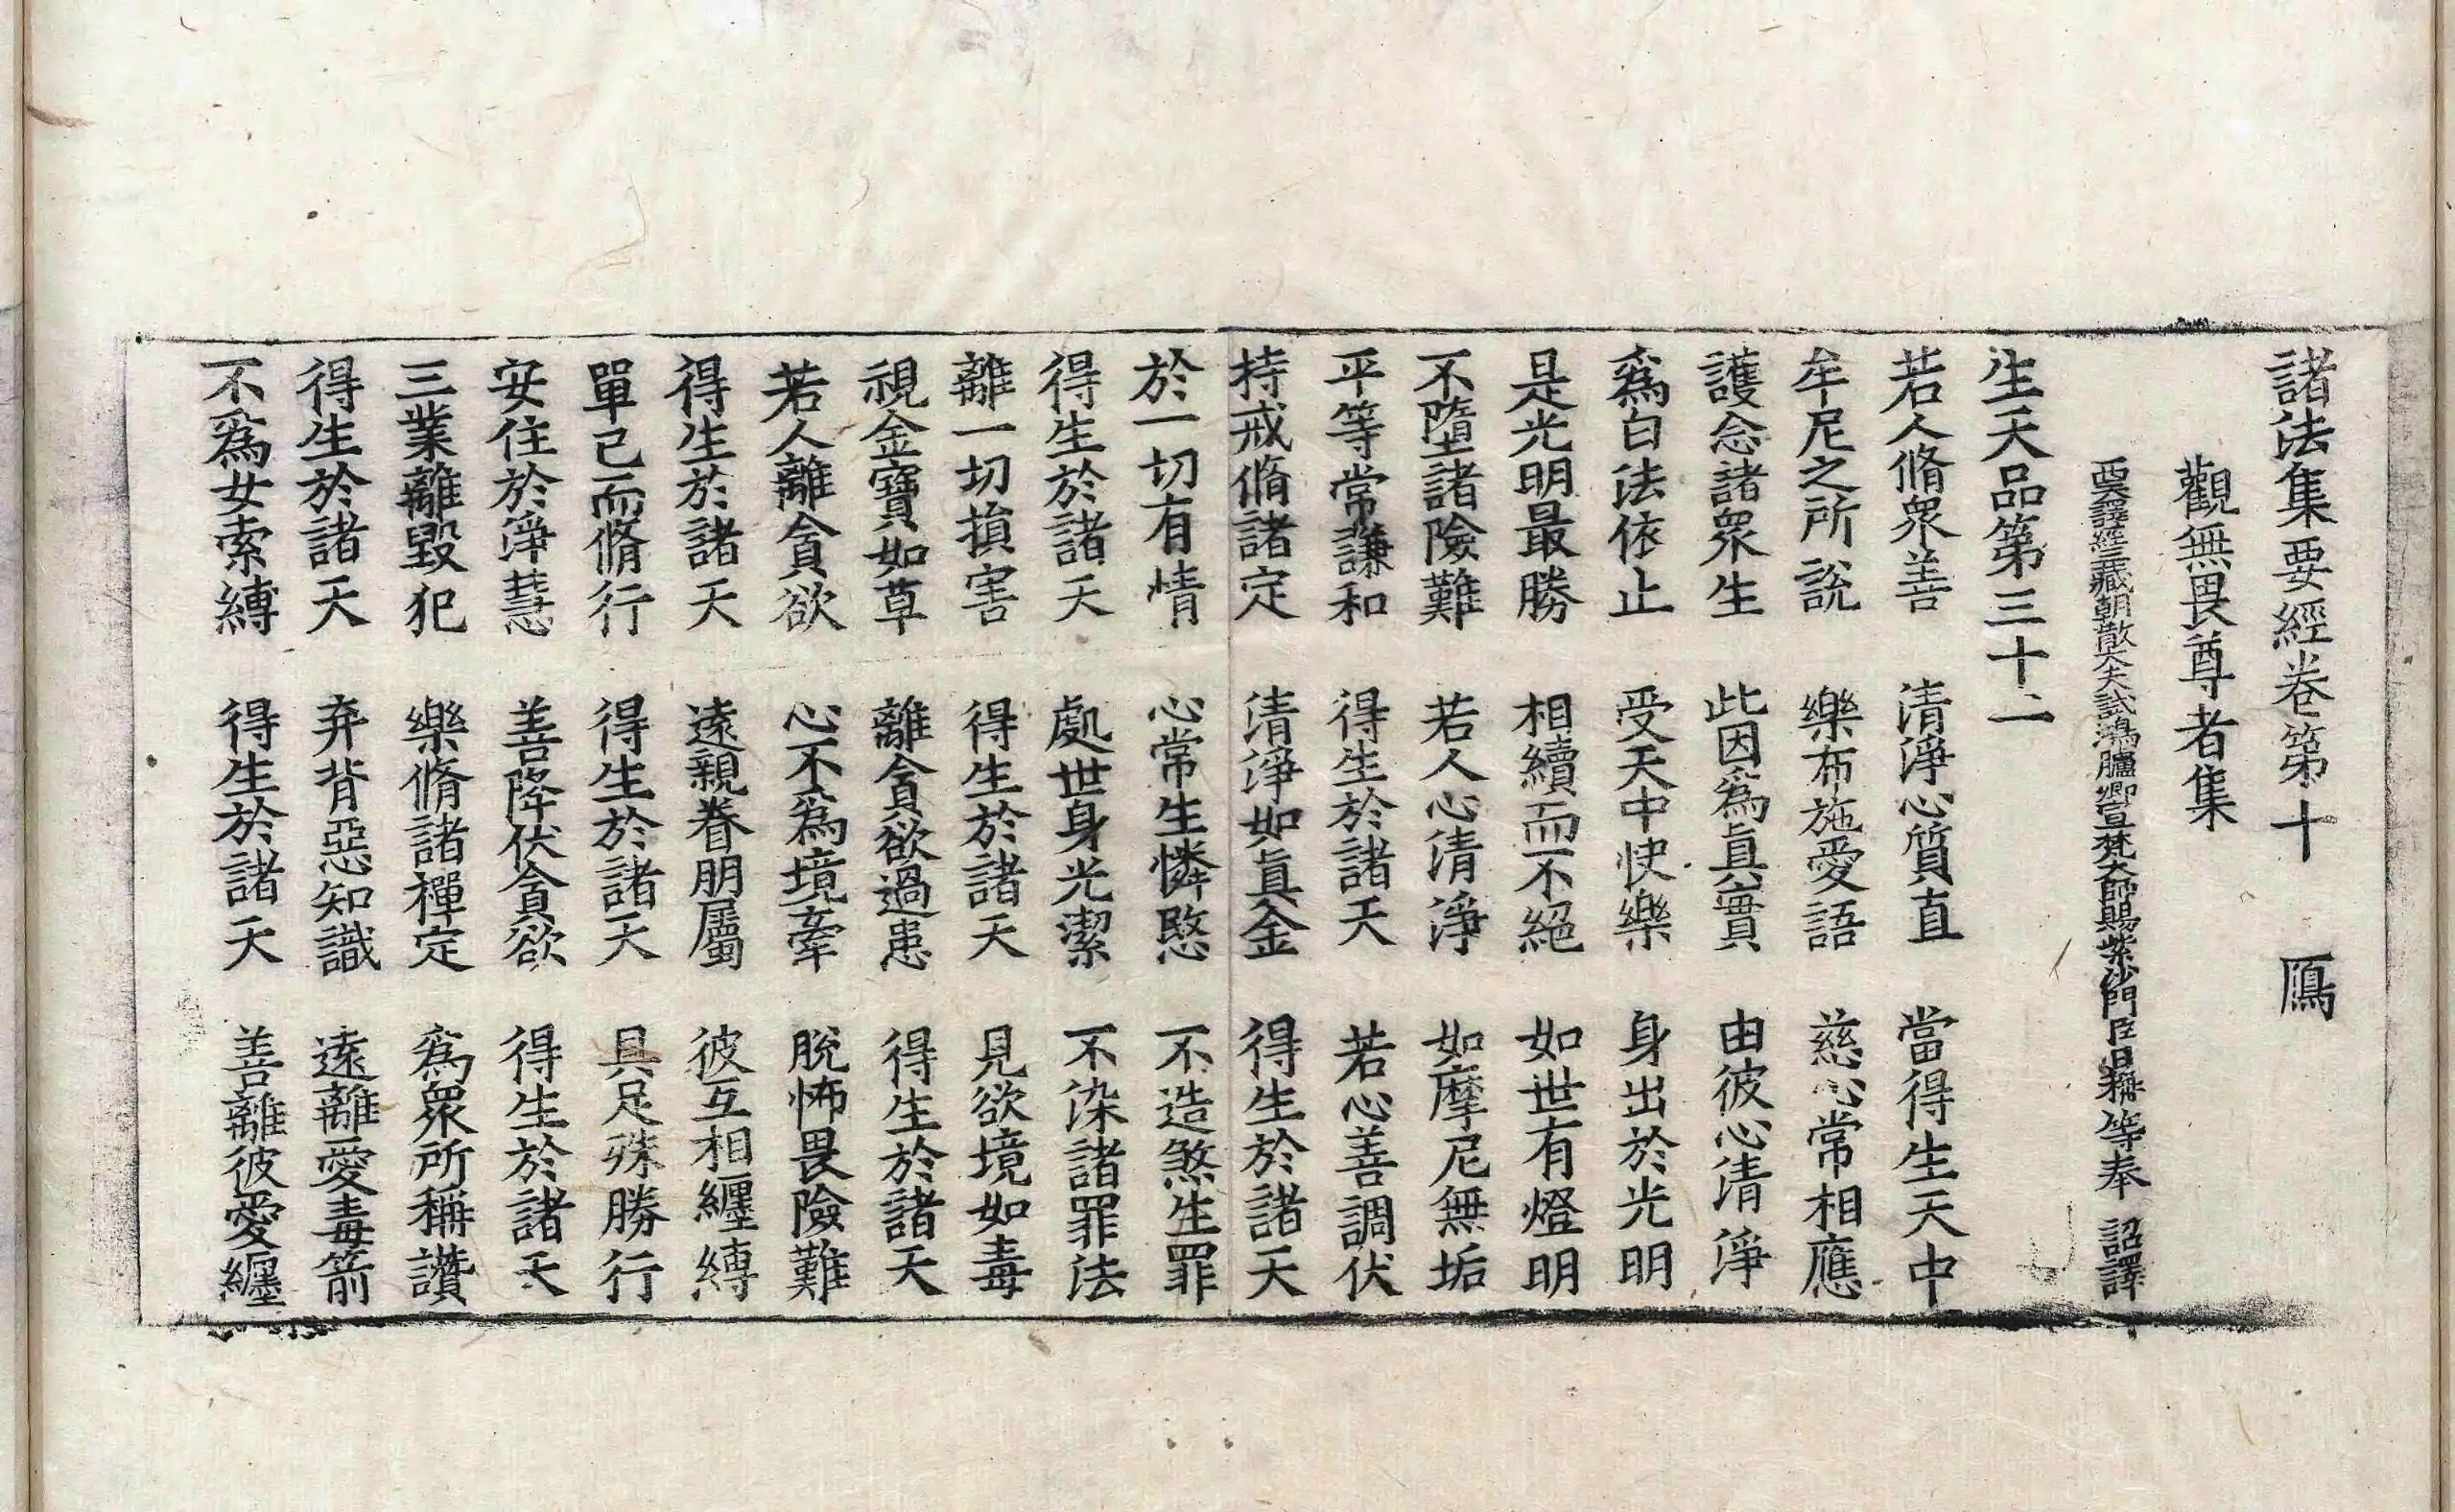 諸法集要經卷第十 鴈
觀無畏尊者集
西天譯經三藏朝散大夫試鴻臚卿宣梵大師賜紫沙門臣日稱等奉 詔譯
生天品第三十二
若人脩衆善 清淨心質直 當得生天中
牟尼之所說 樂布施愛語 慈心常相應
護念諸衆生 此因爲眞實 由彼心清淨
爲白法依止 受天中快樂 身出於光明
是光明最勝 相續而不絕 如世有燈明
不墮諸險難 若人心清淨 如摩尼無垢
平等常謙和 得生於諸天 若心善調伏
持戒脩諸定 清淨如眞金 得生於諸天
於一切有情 心常生憐愍 不造煞生罪
得生於諸天 處世身光潔 不染諸罪法
離一切損害 得生於諸天 見欲境如毒
視金寶如草 離貪欲過患 得生於諸天
若人離貪欲 心不爲境牽 脫怖畏險難
得生於諸天 遠親眷朋屬 彼互相纏縛
單己而脩行 得生於諸天 具足殊勝行
安住於淨慧 善降伏貪欲 得生於諸天
三業離毀犯 樂脩諸禪定 爲衆所稱讚
得生於諸天 弃背惡知識 遠離愛毒箭
不爲女索縛 得生於諸天 善離彼愛纏